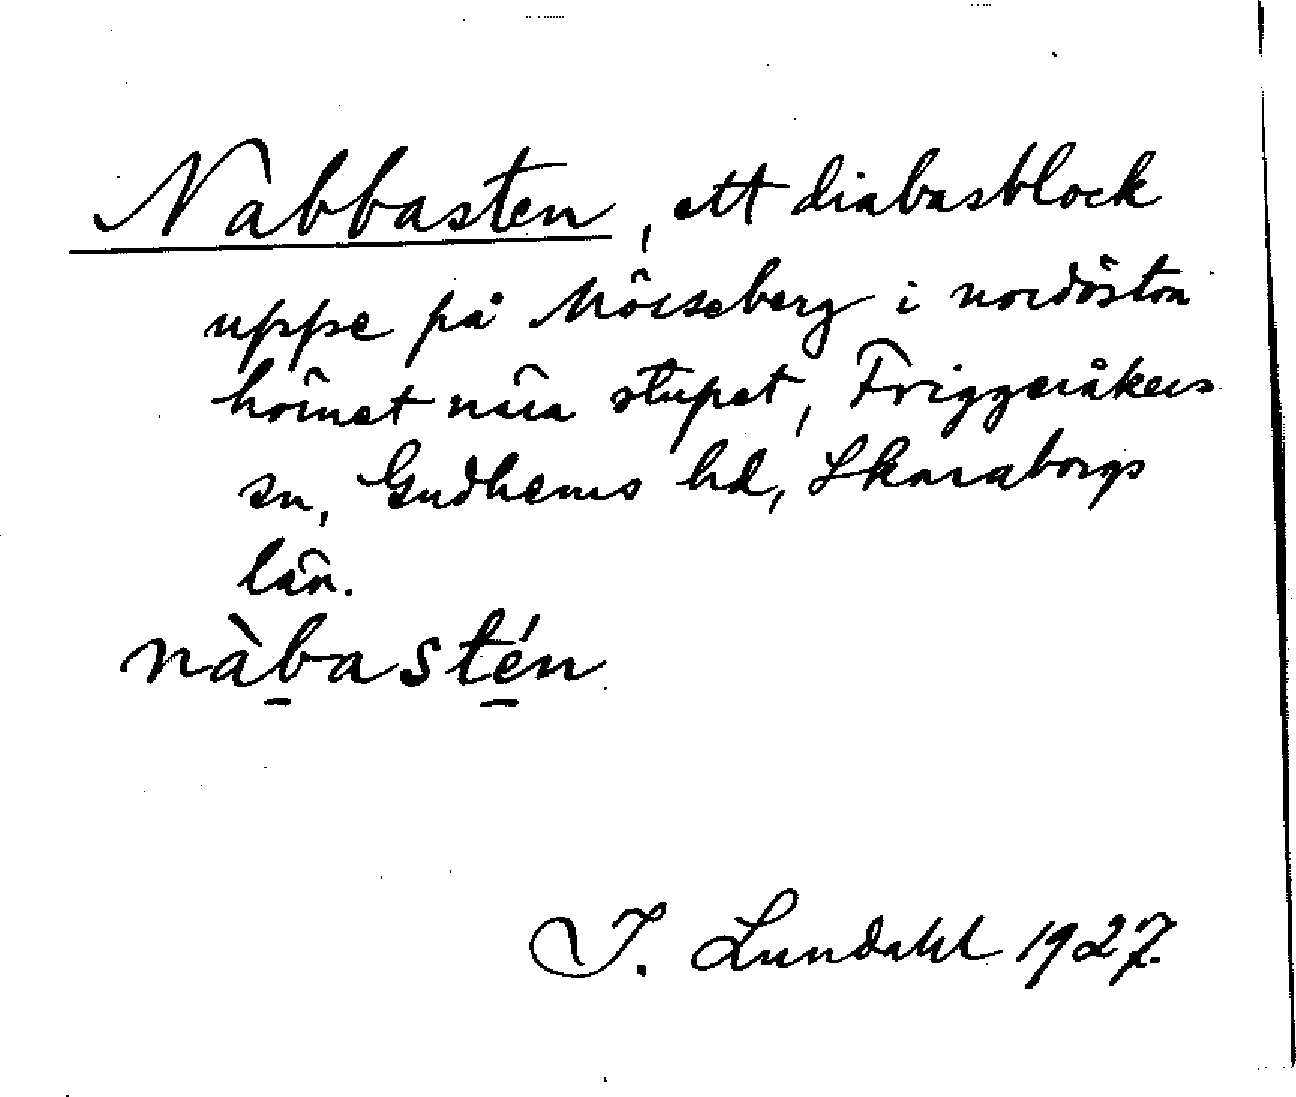 Nabbasten, ett diabasblock
uppe på Mösseberg i nordöstra
hörnet nära stupet, Friggeråkers
sn, Gudhems hd, Skaraborgs
län.
nàbastén
I. Lundahl 1927.